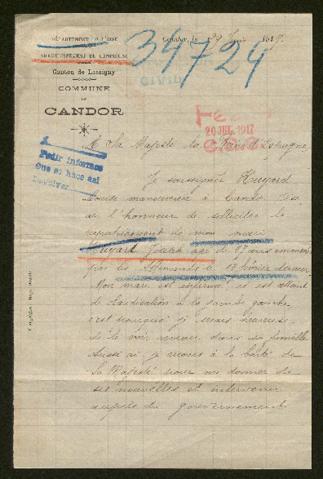 DÉPARTEMENT DE L'OISE
ARRONDISSEMENT DE COMPIÈGNE
Canton de Lassigny
COMMUNE
DE
CANDOR
Candor, le
34724
20 JUL. 1917
Pedir informes
A Sa Majesté le Roi d'Espagne,
Je soussignée Huyard
Louise manouvrière à Candor Oise
ai l'honneur de solliciter le
rapatriement de mon mari
Huyart Joseph âgé de 57 ans emmené
par les Allemands le 18 février dernier.
Mon mari est infirme, il est atteint
de claudication à la jambe gauche
c'est pourquoi je serais heureuse
de le voir revenir dans sa famille
Aussi ai-je recours à la bonté de
Sa Majesté pour me donner de
ses nouvelles et intervenir
auprès du gouvernement